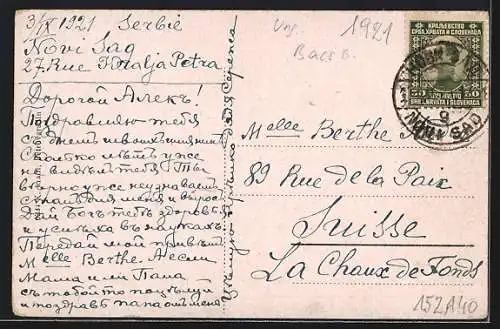 3/IX 1921 Serbie
Novi Sad
27. Rue Kralja Petra
Дорогой Алекъ!
Поздравляю тебя
съ днемъ
Сколько лѣтъ уже
не видѣлъ тебя Ты
вѣрно уже не узнаваемъ
для меня и вырос
дай Богъ тебѣ здоровья
и успѣха въ наукахъ.
Передай мой привѣтъ
Melle Berthe. А если
Мама или Папа
съ тобой то поцѣлуй
и поздравь папа отъ меня
дядя Сережа
Ung.
Bacs B.
1921
КРАЉЕВСТВО
СРБА, ХРВАТА И СЛОВЕНАЦА
50 50
SRBA, HRVATA I SLOVENACA
NOVI SAD
Melle Berthe
89 Rue de la Paix
Suisse
La Chaux de Fonds
152A40